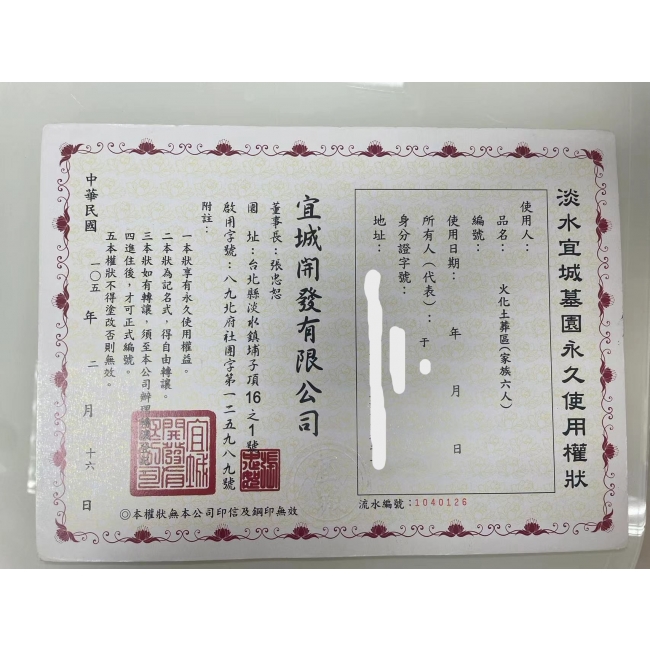 淡水宜城墓園永久使用權狀
使用人：
品名： 火化土葬區(家族六人)
編號：
使用日期： 年 月 日
所有人（代表）： 于
身分證字號：
地址：
流水編號：1040126
宜城開發有限公司
董事長：張忠恕
園 址：台北縣淡水鎮埔子頂16之1號
啟用字號：八九北府社團字第一二五九八九號
附註：
一本狀享有永久使用權益。
二本狀為記名式，得自由轉讓。
三本狀如有轉讓，須至本公司辦理
四進住後，才可正式編號。
五本權狀不得塗改否則無效。
中華民國 一〇五年 二月 十六日
宜城開發有限公司
◎本權狀無本公司印信及鋼印無效